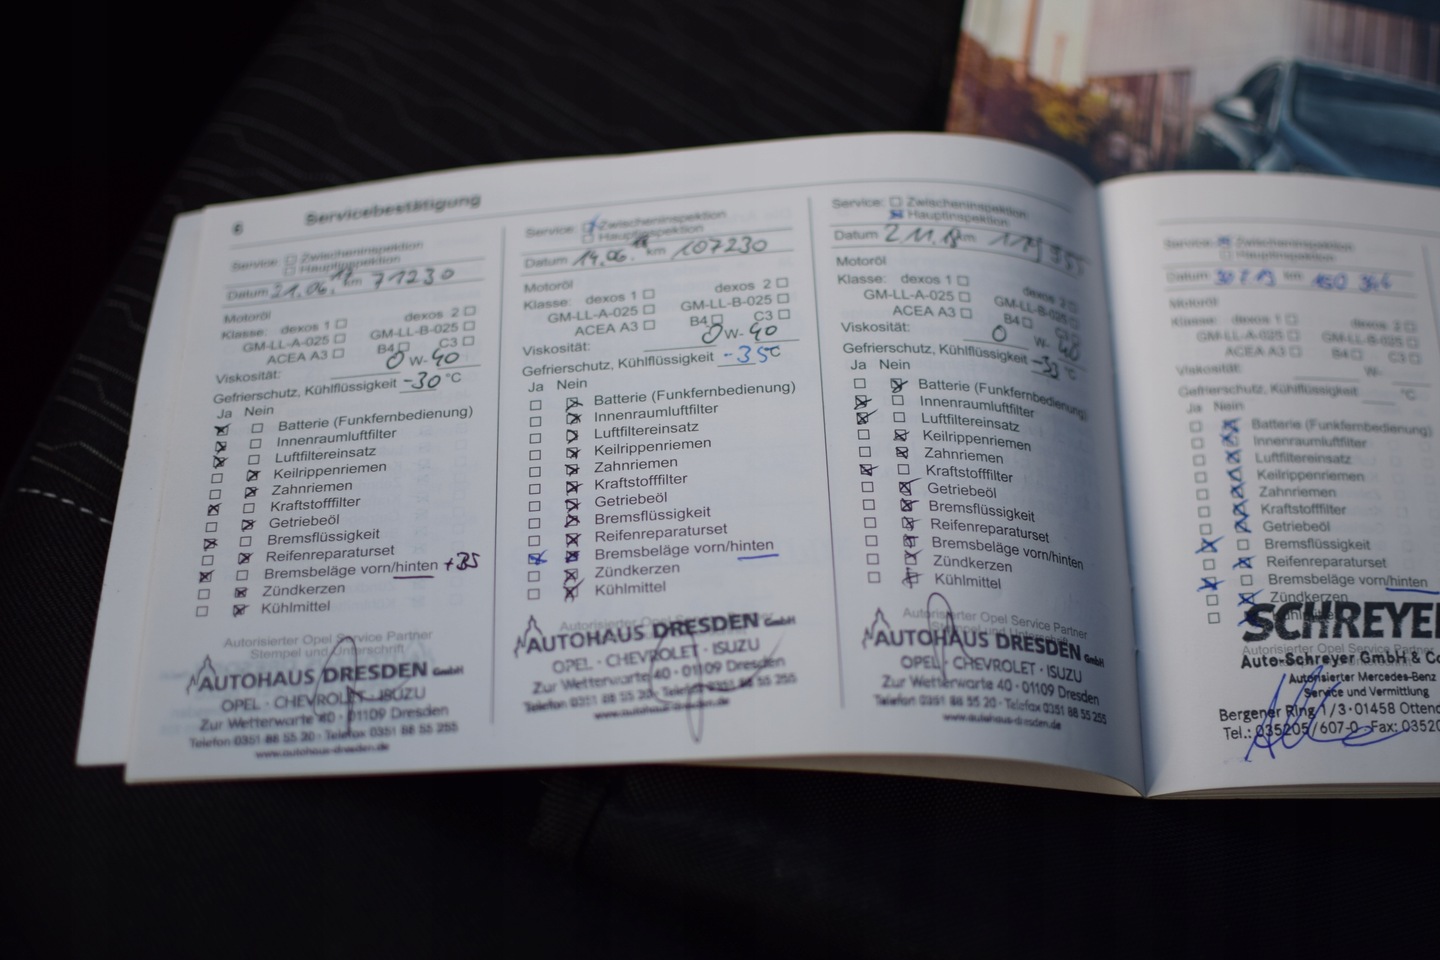 6 Servicebestätigung
Service: ☐ Zwischeninspektion
☐ Hauptinspektion
Datum 21.06.17 km 71230
Motoröl
Klasse: dexos 1 ☐ dexos 2 ☐
GM-LL-A-025 ☐ GM-LL-B-025 ☐
ACEA A3 ☐ B4 ☐ C3 ☐
Viskosität: 0 W- 40
Gefrierschutz, Kühlflüssigkeit -30 °C
Ja Nein
☒ ☐ Batterie (Funkfernbedienung)
☒ ☐ Innenraumluftfilter
☒ ☐ Luftfiltereinsatz
☐ ☒ Keilrippenriemen
☐ ☒ Zahnriemen
☒ ☐ Kraftstofffilter
☐ ☒ Getriebeöl
☒ ☐ Bremsflüssigkeit
☐ ☒ Reifenreparaturset
☒ ☐ Bremsbeläge vorn/hinten
☐ ☒ Zündkerzen
☐ ☒ Kühlmittel
Autorisierter Opel Service Partner
Stempel und Unterschrift
AUTOHAUS DRESDEN GmbH
OPEL · CHEVROLET · ISUZU
Zur Wetterwarte 40 · 01109 Dresden
Telefon 0351 88 55 20 · Telefax 0351 88 55 255
www.autohaus-dresden.de
Service: ☒ Zwischeninspektion
☐ Hauptinspektion
Datum 14.06. km 107230
Motoröl
Klasse: dexos 1 ☐ dexos 2 ☐
GM-LL-A-025 ☐ GM-LL-B-025 ☐
ACEA A3 ☐ B4 ☐ C3 ☐
Viskosität: 0 W- 40
Gefrierschutz, Kühlflüssigkeit -35 °C
Ja Nein
☐ ☒ Batterie (Funkfernbedienung)
☐ ☒ Innenraumluftfilter
☐ ☒ Luftfiltereinsatz
☐ ☒ Keilrippenriemen
☐ ☒ Zahnriemen
☐ ☒ Kraftstofffilter
☐ ☒ Getriebeöl
☐ ☒ Bremsflüssigkeit
☐ ☒ Reifenreparaturset
☒ ☒ Bremsbeläge vorn/hinten
☐ ☒ Zündkerzen
☐ ☒ Kühlmittel
AUTOHAUS DRESDEN GmbH
OPEL · CHEVROLET · ISUZU
Zur Wetterwarte 40 · 01109 Dresden
Telefon 0351 88 55 20 · Telefax 0351 88 55 255
www.autohaus-dresden.de
Service: ☐ Zwischeninspektion
☒ Hauptinspektion
Datum km
Motoröl
Klasse: dexos 1 ☐ dexos 2 ☐
GM-LL-A-025 ☐ GM-LL-B-025 ☐
ACEA A3 ☐ B4 ☐ C3 ☐
Viskosität: 0 W- 40
Gefrierschutz, Kühlflüssigkeit °C
Ja Nein
☐ ☒ Batterie (Funkfernbedienung)
☒ ☐ Innenraumluftfilter
☒ ☐ Luftfiltereinsatz
☐ ☒ Keilrippenriemen
☐ ☒ Zahnriemen
☒ ☐ Kraftstofffilter
☐ ☒ Getriebeöl
☐ ☒ Bremsflüssigkeit
☐ ☒ Reifenreparaturset
☐ ☒ Bremsbeläge vorn/hinten
☐ ☒ Zündkerzen
☐ ☒ Kühlmittel
Autorisierter Opel Service Partner
Stempel und Unterschrift
AUTOHAUS DRESDEN GmbH
OPEL · CHEVROLET · ISUZU
Zur Wetterwarte 40 · 01109 Dresden
Telefon 0351 88 55 20 · Telefax 0351 88 55 255
www.autohaus-dresden.de
Service: ☒ Zwischeninspektion
☐ Hauptinspektion
Datum km
Motoröl
Klasse: dexos 1 ☐ dexos 2 ☐
GM-LL-A-025 ☐ GM-LL-B-025 ☐
ACEA A3 ☐ B4 ☐ C3 ☐
Viskosität: W-
Gefrierschutz, Kühlflüssigkeit °C
Ja Nein
☐ ☒ Batterie (Funkfernbedienung)
☐ ☒ Innenraumluftfilter
☐ ☒ Luftfiltereinsatz
☐ ☒ Keilrippenriemen
☐ ☒ Zahnriemen
☐ ☒ Kraftstofffilter
☐ ☒ Getriebeöl
☒ ☐ Bremsflüssigkeit
☐ ☒ Reifenreparaturset
☒ ☐ Bremsbeläge vorn/hinten
☐ ☒ Zündkerzen
☐ ☒ Kühlmittel
SCHREYE
Auto-Schreyer GmbH & Co
Autorisierter Mercedes-Benz
Service und Vermittlung
Bergener Ring 1/3 · 01458 Ottend
Tel.: 035205/607-0 Fax: 03520